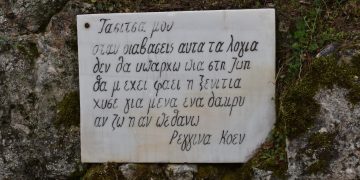 Τασιτσα μου
οταν διαβασεις αυτα τα λογια
δεν θα υπαρχω πια στη ζωη
θα μ εχει φαει η ξενιτια
χυσε για μενα ενα δακρυ
αν ζω η αν πεθανω
Ρεγγινα Κοεν